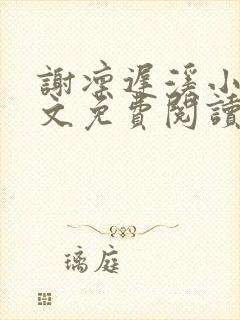 謝凜遲溪小
文免費閱讀
璃庭